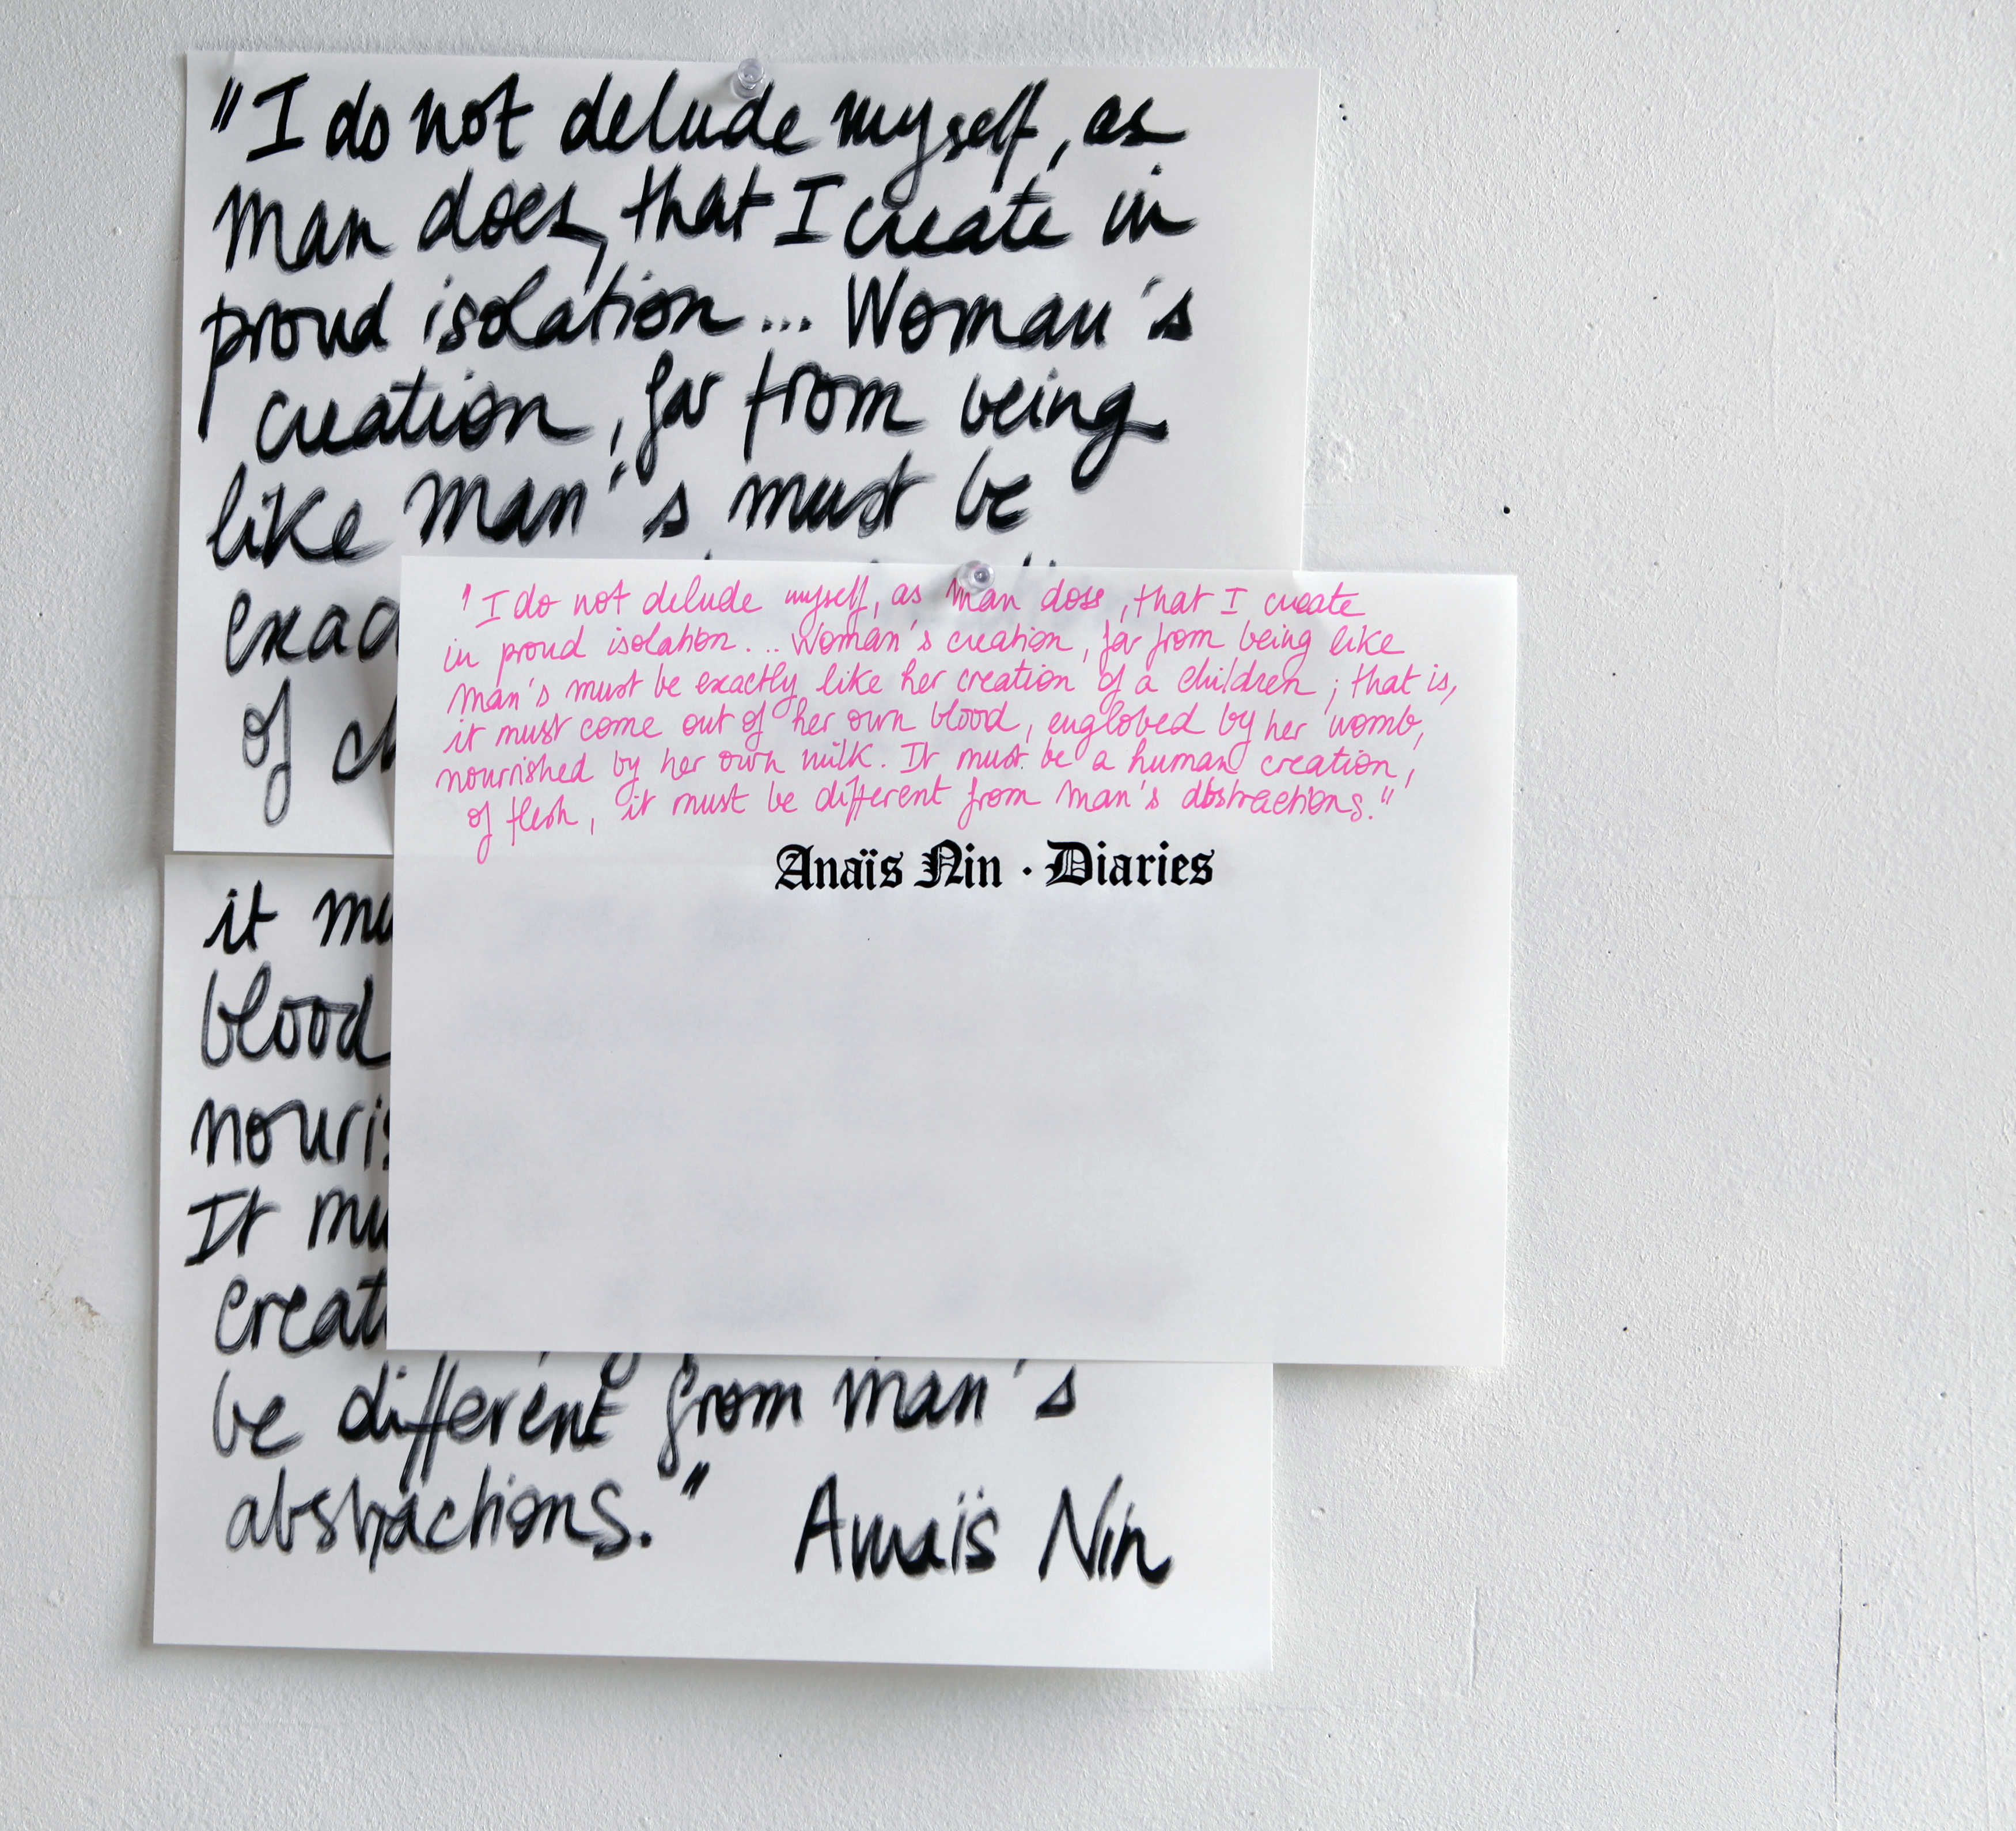 "I do not delude myself, as
man does, that I create in
proud isolation... Woman's
creation, far from being
like man's must be
exac
of ch
'I do not delude myself, as man does, that I create
in proud isolation... Woman's creation, far from being like
man's must be exactly like her creation of a children; that is,
it must come out of her own blood, englobed by her womb,
nourished by her own milk. It must be a human creation,
of flesh, it must be different from man's abstractions."
Anaïs Nin · Diaries
it mu
blood
nouris
It mu
creat
be different from man's
abstractions." Anaïs Nin